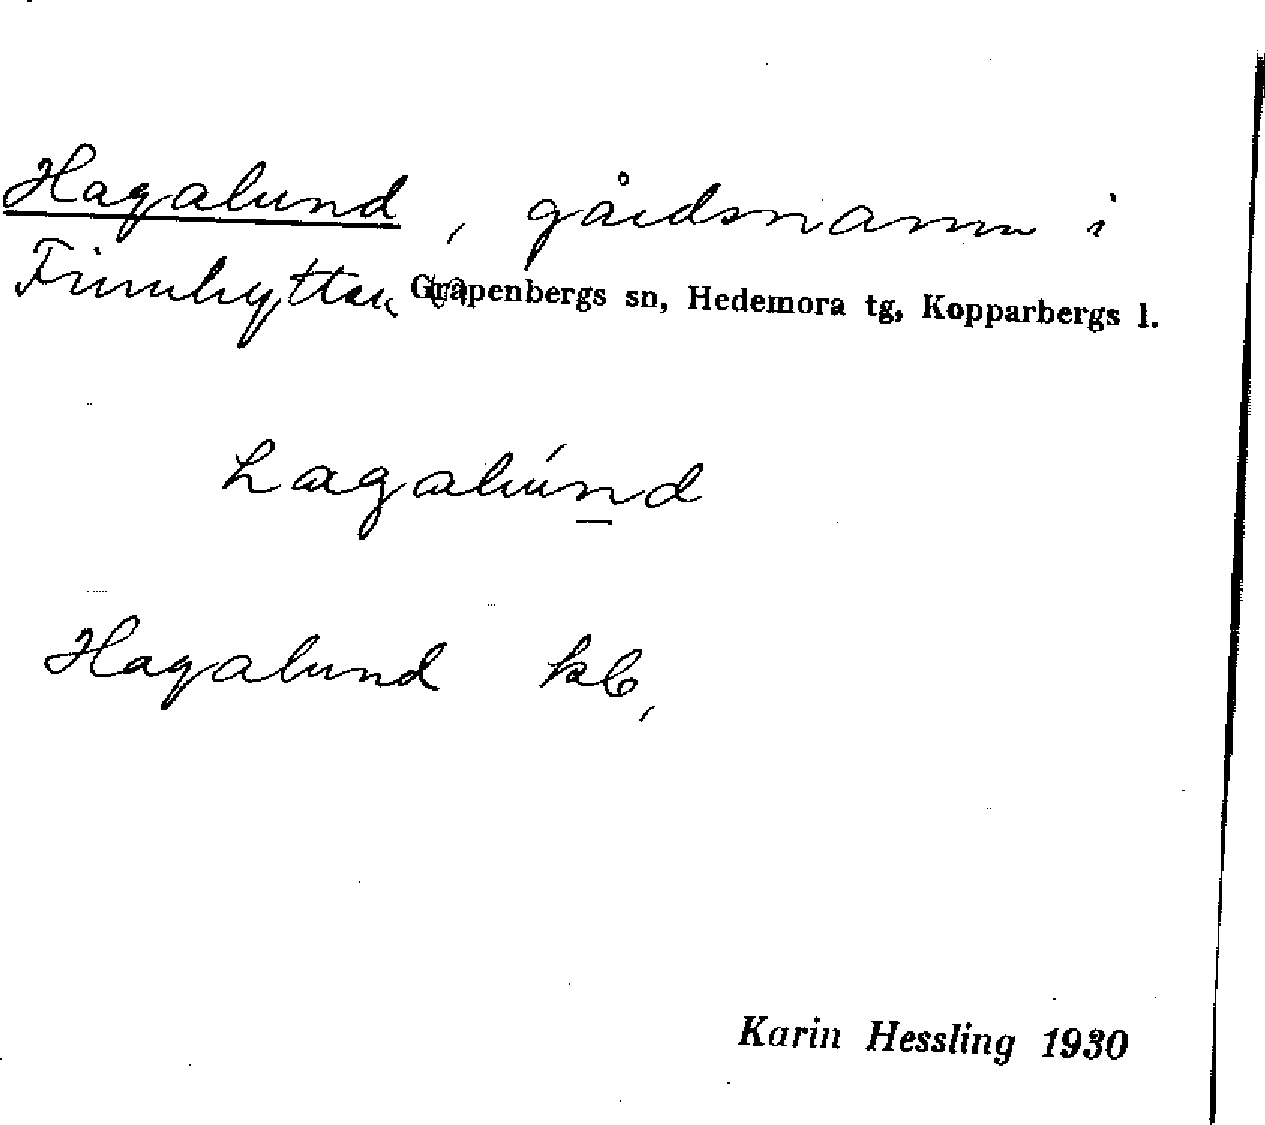 Hagalund, gårdsnamn i
Finnhyttan Grapenbergs sn, Hedemora tg, Kopparbergs l.
hagalúnd
Hagalund kb,
Karin Hessling 1930